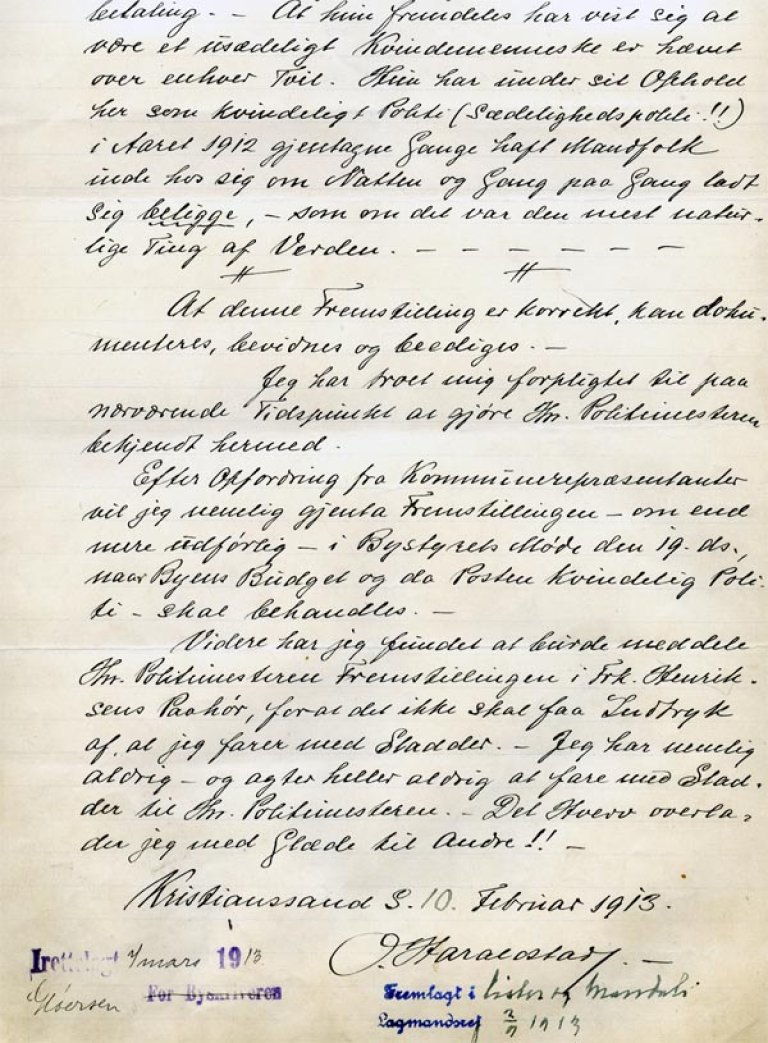 betaling. — At hun fremdeles har vist sig at
være et usædeligt Kvindemenneske er hævet
over enhver Tvil. Hun har under sit Ophold
her som kvindeligt Politi (Sædelighedspoliti!!)
i Aaret 1912 gjentagne Gange haft Mandfolk
inde hos sig om Natten og Gang paa Gang ladt
sig beligge, – som om det var den mest natur-
lige Ting af Verden. — — — — — —
At denne Fremstilling er korrekt, kan doku-
menteres, bevidnes og beediges. —
Jeg har troet mig forpligtet til paa
nærværende Tidspunkt at gjøre Hr. Politimesteren
bekjendt hermed.
Efter Opfordring fra Kommunerepræsentanter
vil jeg nemlig gjenta Fremstillingen – om end
mere udførlig – i Bystyrets Møde den 19. ds.,
naar Byens Budget og da Posten Kvindelig Poli-
ti – skal behandles. —
Videre har jeg fundet at burde meddele
Hr. Politimesteren Fremstillingen i Frk. Henrik-
sens Paahør, for at det ikke skal faa Indtryk
af, at jeg farer med Sladder. – Jeg har nemlig
aldrig – og agter heller aldrig at fare med Slad-
der til Hr. Politimesteren. – Det Hverv overla-
der jeg med Glæde til Andre!! —
Kristianssand S. 10. Februar 1913.
Irettelagt 4/mars 1913
O. Haraldstad. —
For Byskriveren
Fremlagt i Lister og Mandals
Lagmandsret 2/9 1913